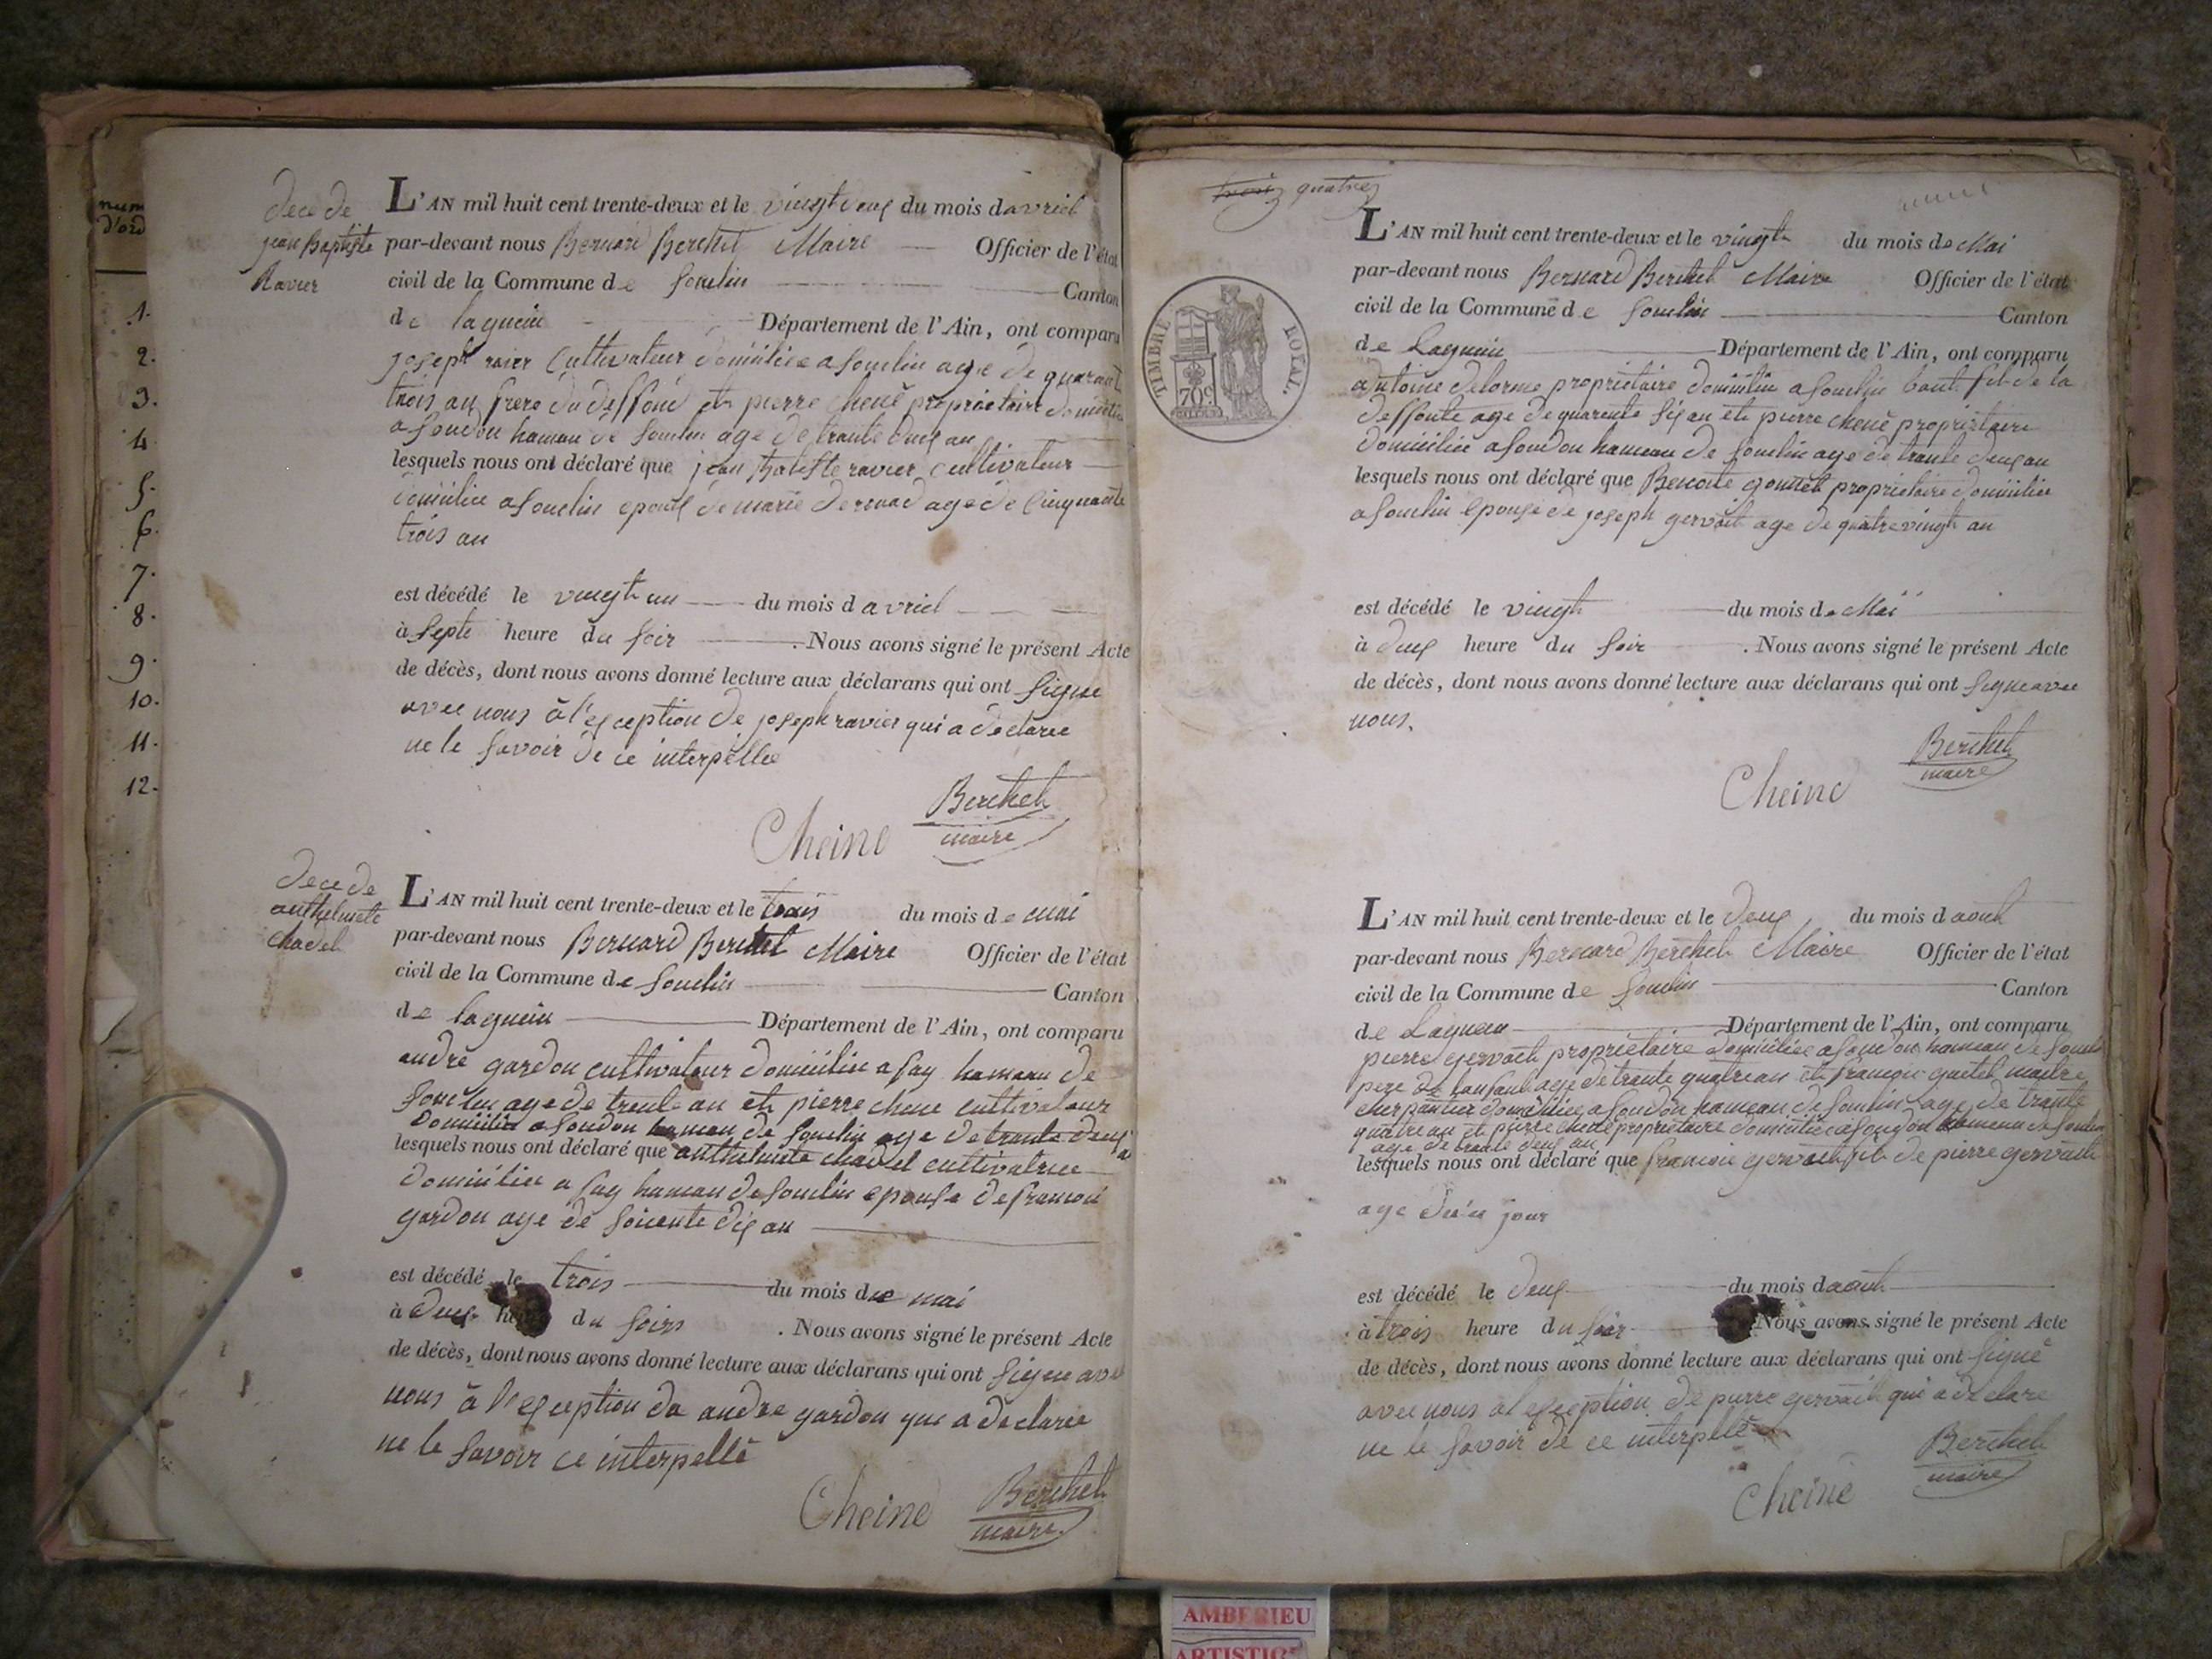 num
d'ord
1.
2.
3.
4
5.
6.
7.
8.
9.
10.
11.
12.
Dece de
jean Baptiste
Ravier
L'AN mil huit cent trente-deux et le vingt deux du mois d avriel
par-devant nous Bernard Berthet Maire Officier de l'état
civil de la Commune de Souclin Canton
de lagneiu Département de l'Ain, ont comparu
joseph ravier Cultivateur domiilice a souclin age de quarant
trois an frere du deffönt et pierre chene proprietaire domiilie
a soudon hamau de souclin age de trante deux an
lesquels nous ont déclaré que jean Batiste ravier cultivateur
domiilice a souclin epoux de marie age de cinquante
trois an
est décédé le vingt un du mois d avriel
à septe heure du soir . Nous avons signé le présent Acte
de décès, dont nous avons donné lecture aux déclarans qui ont signe
avec nous à l'exception de joseph ravier qui a declaree
ne le savoir de ce interpellee
Cheine Berthet
maire
Dece de
anthelmete
chadel
L'AN mil huit cent trente-deux et le trois du mois de mai
par-devant nous Bernard Berthet Maire Officier de l'état
civil de la Commune de Souclin Canton
de lagneiu Département de l'Ain, ont comparu
andre gardon cultivateur domiilie a fay hamau de
souclin age de trente an et pierre chene cultivateur
domiilie a soudon hamau de souclin age de trante deux
lesquels nous ont déclaré que anthelmete chadel cultivatrice
domiilie a fay hamau de souclin epouse de francoi
gardon age de soicente dix an
est décédé le trois du mois de mai
à deux heure du soirs . Nous avons signé le présent Acte
de décès, dont nous avons donné lecture aux déclarans qui ont signe avec
nous à l'exception de andre gardon qui a declaree
ne le savoir ce interpellé
Cheine Berthet
maire
trois quatre
TIMBRE ROYAL.
70c
L'AN mil huit cent trente-deux et le vingt du mois de Mai
par-devant nous Bernard Berthet Maire Officier de l'état
civil de la Commune de Souclin Canton
de Lagneiu Département de l'Ain, ont comparu
antoine delorme proprietaire domiilie a souclin fil de la
deffonte age de quarente six an et pierre chene proprietaire
domiilie a soudon hamau de souclin age de trante deux an
lesquels nous ont déclaré que Benoite gonnet proprietaire domiilie
a souclin epouse de joseph gervait age de quatre vingt an
est décédé le vingt du mois de Mai
à deux heure du soir . Nous avons signé le présent Acte
de décès, dont nous avons donné lecture aux déclarans qui ont signe avec
nous.
Berthet
maire
Cheine
L'AN mil huit cent trente-deux et le deux du mois d aout
par-devant nous Bernard Berthet Maire Officier de l'état
civil de la Commune de Souclin Canton
de Lagneu Département de l'Ain, ont comparu
pierre gervait proprietaire domiiliee a soudon hameau de soucli
pere de lanfant age de trante quatre an et francoi maitre
cherpantier domiilice a soudon hameau de souclin age de trante
quatre an et pierre chene proprietaire domiilice a soudon hameau de souclin
age de trante deux an
lesquels nous ont déclaré que francoie gervait fil de pierre gervait
age du'n jour
est décédé le deux du mois d aout
à trois heure du soir Nous avons signé le présent Acte
de décès, dont nous avons donné lecture aux déclarans qui ont signé
avec nous al exception de pierre gervait qui a declare
ne le savoir de ce interpellé
Berthet
maire
Cheine
AMBERIEU
ARTISTIC